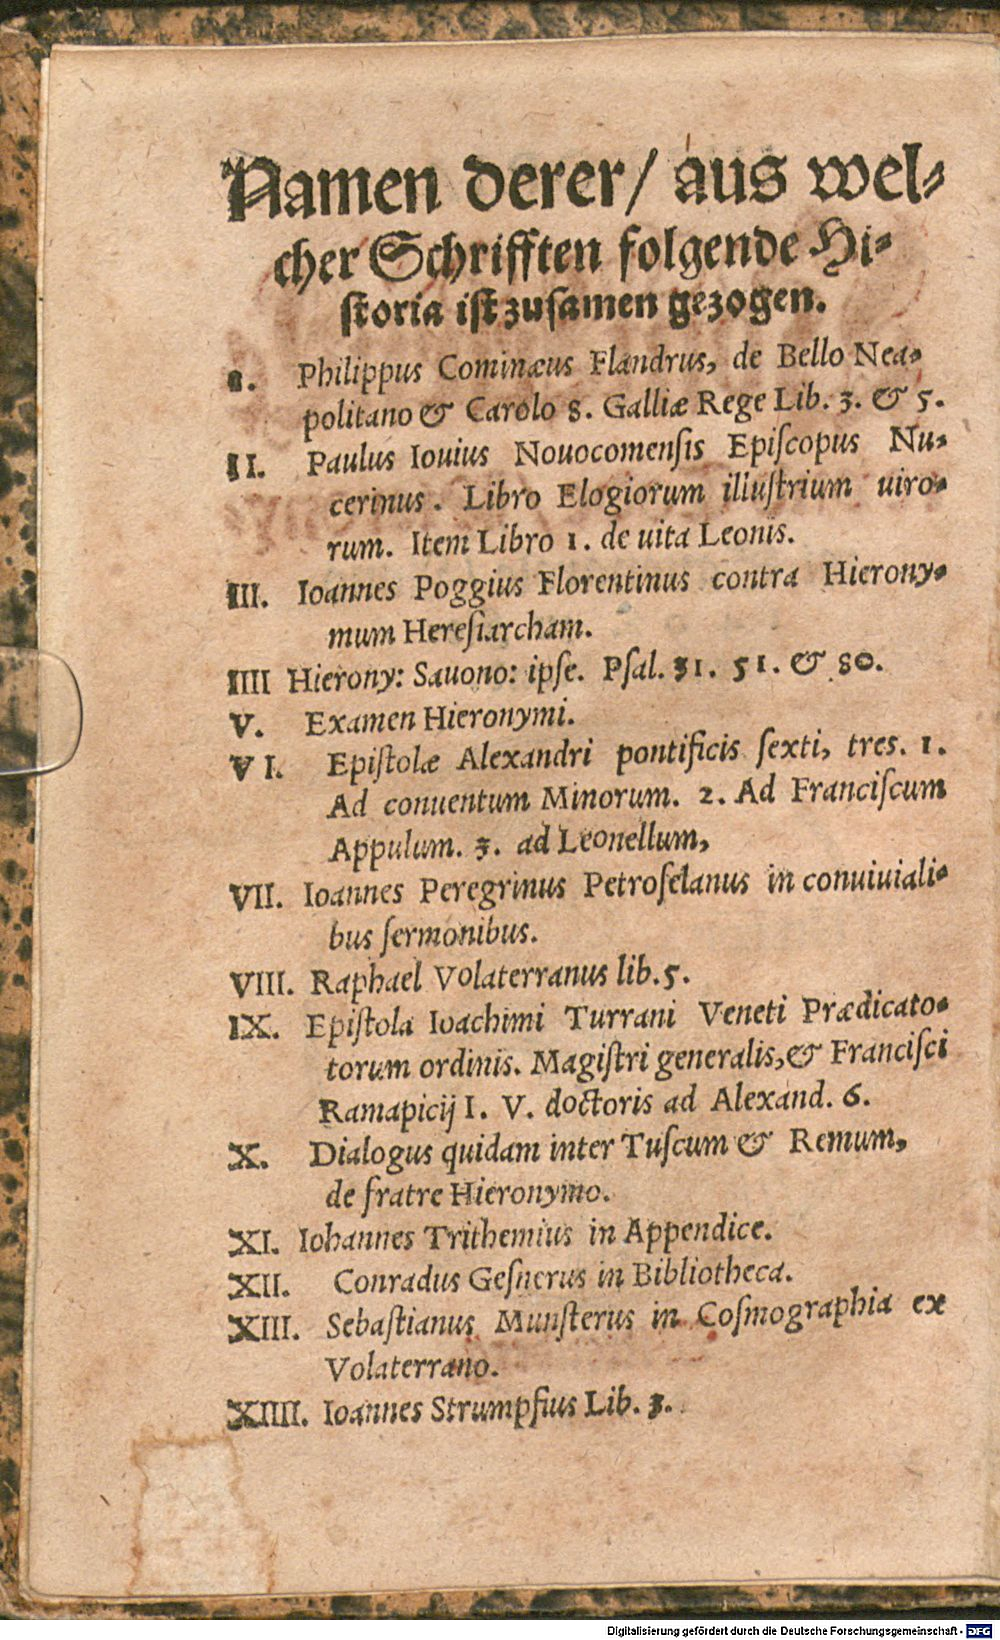 Namen derer/ aus wel⸗
cher Schrifften folgende Hi⸗
ſtoria iſt zuſamen gezogen.
I. Philippus Cominæus Flandrus, de Bello Nea-
politano & Carolo 8. Galliæ Rege Lib. 3. & 5.
II. Paulus Iouius Nouocomenſis Epiſcopus Nu-
cerinus. Libro Elogiorum illuſtrium uiro-
rum. Item Libro 1. de uita Leonis.
III. Ioannes Poggius Florentinus contra Hierony-
mum Hereſiarcham.
IIII Hierony: Sauono: ipſe. Pſal. 31. 51. & 80.
V. Examen Hieronymi.
VI. Epiſtolæ Alexandri pontificis ſexti, tres. 1.
Ad conuentum Minorum. 2. Ad Franciſcum
Appulum. 3. ad Leonellum,
VII. Ioannes Peregrinus Petroſelanus in conuiuiali-
bus ſermonibus.
VIII. Raphael Volaterranus lib. 5.
IX. Epiſtola Ioachimi Turrani Veneti Prædicato-
torum ordinis. Magiſtri generalis, & Franciſci
Ramapicij I. V. doctoris ad Alexand. 6.
X. Dialogus quidam inter Tuſcum & Remum,
de fratre Hieronymo.
XI. Iohannes Trithemius in Appendice.
XII. Conradus Geſnerus in Bibliotheca.
XIII. Sebaſtianus Munſterus in Coſmographia ex
Volaterrano.
XIIII. Ioannes Strumpfius Lib. 3.
Digitalisierung gefördert durch die Deutsche Forschungsgemeinschaft - DFG